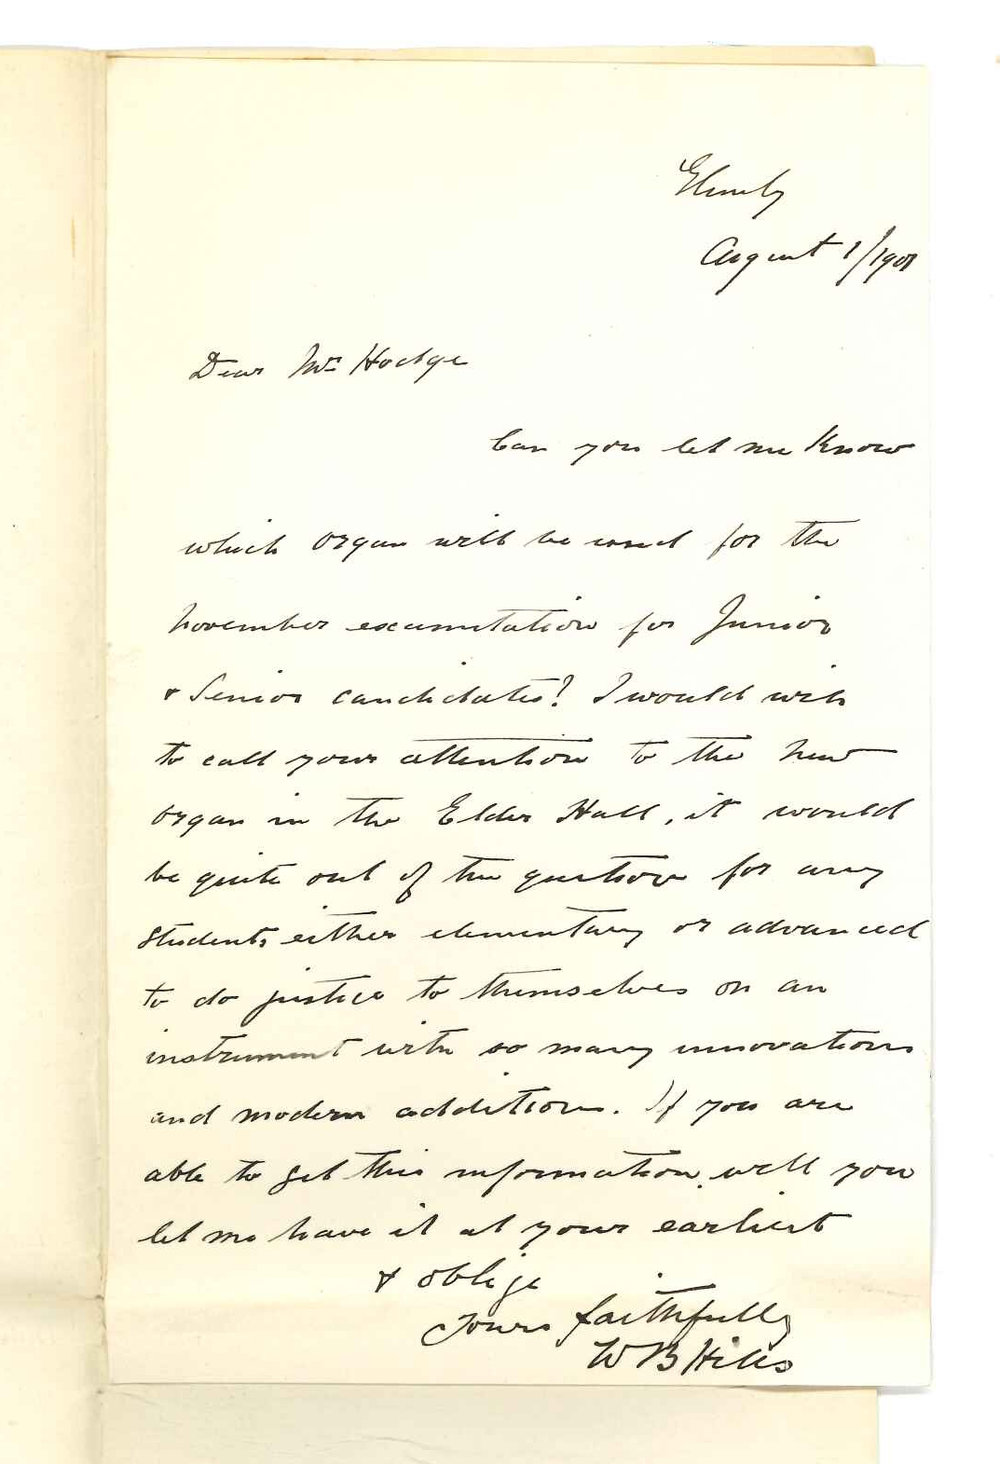 Glenelg
August 1/1901
Dear Mr Hodge
Can you let me know
which organ will be used for the
November examination for Junior
& Senior candidates? I would wish
to call your attention to the new
organ in the Elder Hall, it would
be quite out of the question for any
students either elementary or advanced
to do justice to themselves on an
instrument with so many innovations
and modern additions. If you are
able to get this information, will you
let me have it at your earliest
& oblige
Yours faithfully
W B Hills